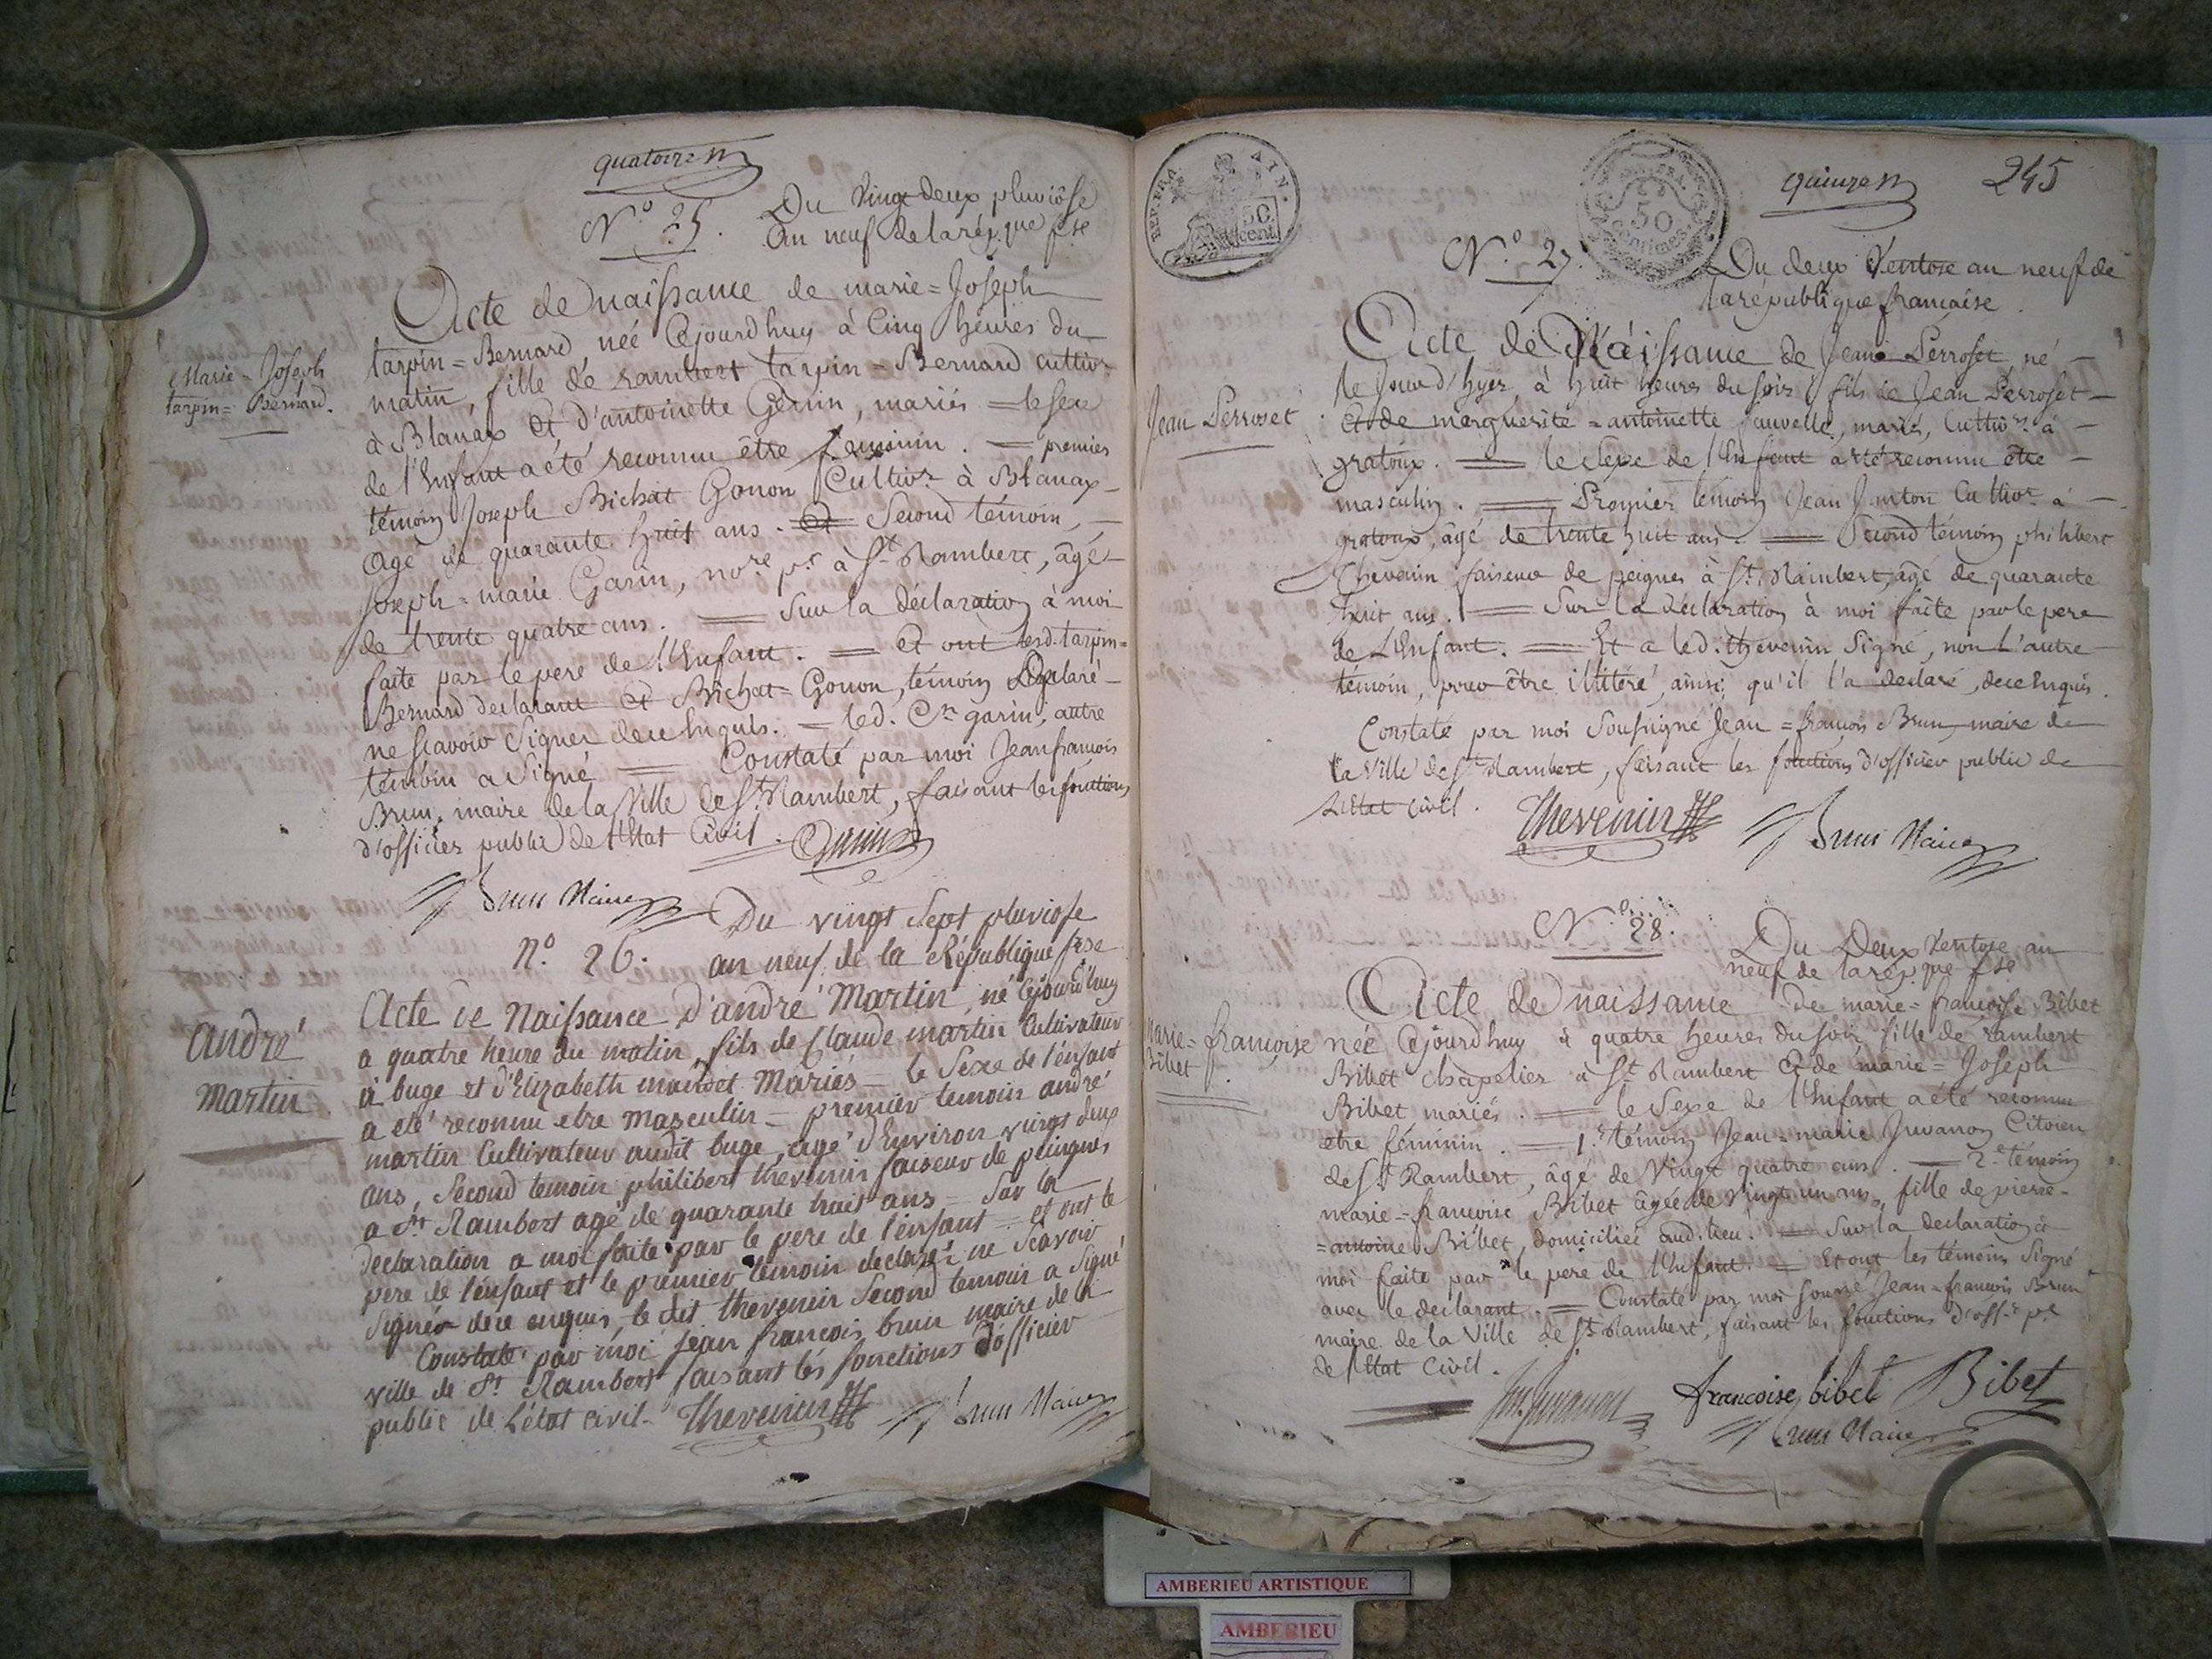 quatorze
N.° 25. Du Vingt deux pluviôse
an neuf de la rép.que f.se
Acte de naissance de marie=Joseph
tarpin=Bernard, née cejourd'huy à cinq heures du
matin, fille de rambert tarpin=Bernard cultiv.r
à Blanax et d'antoinette Genin, mariés = le sexe
de l'enfant a été reconnu être féminin. = premier
témoin Joseph Bichat Gonon Cultiv.r à Blanax
agé de quarante huit ans. = Second témoin,
Joseph=marie Garin, no.re p.c à S.t Rambert, âgé
de trente quatre ans. = Sur la déclaration à moi
faite par le pere de l'Enfant. = et ont lesd. tarpin=
Bernard declarant et Bichat=Gonon, témoin déclaré
ne sçavoir signer de ce enquis. = led. C.n garin, autre
témoin a Signé = Constaté par moi Jean françois
Brun, maire de la Ville de S.t Rambert, faisant les fonctions
d'officier public de l'Etat Civil.
Marie=Joseph
tarpin=Bernard.
Garin
Brun Maire
N.° 26. Du vingt Sept pluviose
an neuf de la République f.se
Acte de Naissance d'andré Martin, né cejourd'huy
a quatre heure du matin, fils de Claude martin Cultivateur
à buge et d'Elizabeth Mariés = le Sexe de l'enfant
a eté reconnu etre Masculin = premier temoin andré
martin Cultivateur audit buge, agé d'Environ vingt deux
ans, Second temoin philibert thevenin faiseur de peingnes
a S.t Rambert agé de quarante huit ans = Sur la
declaration a moi faite par le pere de l'enfant = et ont le
pere de l'enfant et le premier temoin declaré ne Scavoir
Signer de ce enquis, le dit thevenin Second temoin a Signé
Constaté par moi Jean françois brun maire de la
ville de S.t Rambert faisant les fonctions d'officier
public de l'état civil.
andré
Martin
Thevenin
Brun Maire
REP. FRA. 50 cent.
50 centimes
quinze 245
N.° 27.
Du deux Ventose an neuf de
la république française.
Acte de Naissance de Jean Perroset, né
le jour d'hyer, à huit heures du soir, fils de Jean Perroset
et de marguerite=antoinette Jauvelle, mariés, Cultiv.rs à
gratoux. = le Sexe de l'Enfant a été reconnu être
masculin. = Premier témoin Jean Cultiv.r à
gratoux, âgé de trente huit ans. = Second témoin philibert
Thevenin, faiseur de peignes à S.t Rambert, âgé de quarante
huit ans. = Sur la déclaration à moi faite par le pere
de L'Enfant. = Et a led. thevenin Signé, non L'autre
témoin, pour être illitéré, ainsi qu'il l'a declaré, de ce enquis.
Constaté par moi Soussigné Jean=françois Brun, maire de
la Ville de S.t Rambert, faisant les fonctions d'officier public de
L'Etat civil.
Jean Perroset
Thevenin
Brun Maire
N.° 28.
Du Deux Ventose an
neuf de la rép.que f.se
Acte de naissance de marie=françoise Bibet
née cejourd'huy à quatre heures du soir, fille de rambert
Bibet chapelier à S.t Rambert et de marie=Joseph
Bibet mariés. = le Sexe de l'Enfant a été reconnu
etre féminin. = 1.er témoin Jean=marie Juvanon Citoien
de S.t Rambert, âgé de Vingt quatre ans. = 2.e témoin
marie=françoise Bibet âgée de Vingt un ans, fille de pierre=
=antoine Bibet, domiciliée aud. lieu. = Sur la declaration à
moi faite par le pere de l'Enfant. = Et ont les témoins Signé
avec le declarant. = Constaté par moi souss.é Jean=françois Brun
maire de la Ville de S.t Rambert, faisant les fonctions d'off.r p.c
de l'Etat civil.
Marie=françoise
Bibet.
Jm. Juvanon françoise bibet Bibet
Brun Maire
AMBERIEU ARTISTIQUE
AMBERIEU